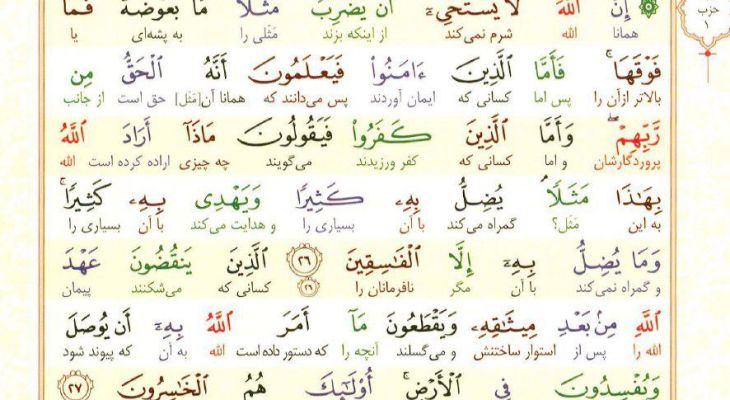 حزب
۱
إِنَّ ٱللَّهَ لَا يَسْتَحْيِۦٓ أَن يَضْرِبَ مَثَلًا مَّا بَعُوضَةً فَمَا
همانا الله شرم نمی‌کند از اینکه بزند مَثَلی را به پشه‌ای یا
فَوْقَهَا ۚ فَأَمَّا ٱلَّذِينَ ءَامَنُوا۟ فَيَعْلَمُونَ أَنَّهُ ٱلْحَقُّ مِن
بالاتر ازآن را پس اما کسانی که ایمان آوردند پس می‌دانند که همانا آن[مَثَل] حق است از جانب
رَّبِّهِمْ ۖ وَأَمَّا ٱلَّذِينَ كَفَرُوا۟ فَيَقُولُونَ مَاذَآ أَرَادَ ٱللَّهُ
پروردگارشان و اما کسانی که کفر ورزیدند می‌گویند چه چیزی اراده کرده است الله
بِهَـٰذَا مَثَلًا ۘ يُضِلُّ بِهِۦ كَثِيرًا وَيَهْدِى بِهِۦ كَثِيرًا ۚ
به این مَثَل؟ گمراه می‌کند با آن بسیاری را و هدایت می‌کند با آن بسیاری را
وَمَا يُضِلُّ بِهِۦٓ إِلَّا ٱلْفَـٰسِقِينَ ٢٦ ٱلَّذِينَ يَنقُضُونَ عَهْدَ
و گمراه نمی‌کند با آن مگر نافرمانان را ۲۶ کسانی که می‌شکنند پیمان
ٱللَّهِ مِنۢ بَعْدِ مِيثَـٰقِهِۦ وَيَقْطَعُونَ مَآ أَمَرَ ٱللَّهُ بِهِۦٓ أَن يُوصَلَ
الله را پس از استوار ساختنش و می‌گسلند آنچه را که دستور داده است الله به آن که پیوند شود
وَيُفْسِدُونَ فِى ٱلْأَرْضِ ۚ أُو۟لَـٰٓئِكَ هُمُ ٱلْخَـٰسِرُونَ ٢٧